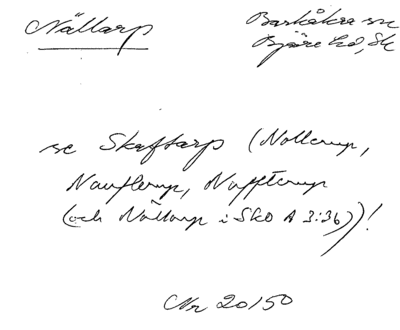 Nällarp
Barkåkra sn
Bjäre hd, Sk
se Skeftarp (Nollerup,
Nauflerup, Naffterup
(och Nällarp i SkO A 3:36))!
Nr 20/50